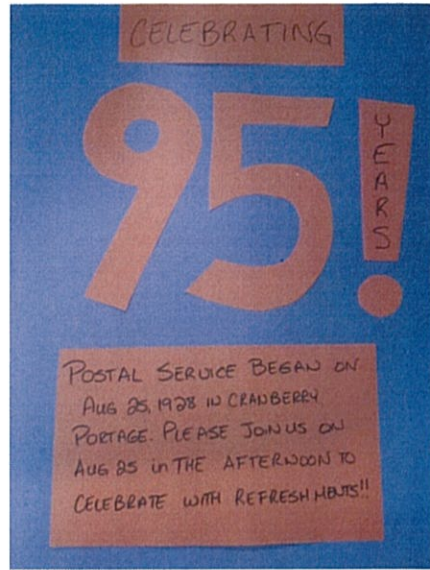 CELEBRATING
95!
YEARS
POSTAL SERVICE BEGAN ON
AUG 25, 1928 IN CRANBERRY
PORTAGE. PLEASE JOIN US ON
AUG 25 in THE AFTERNOON TO
CELEBRATE WITH REFRESHMENTS!!